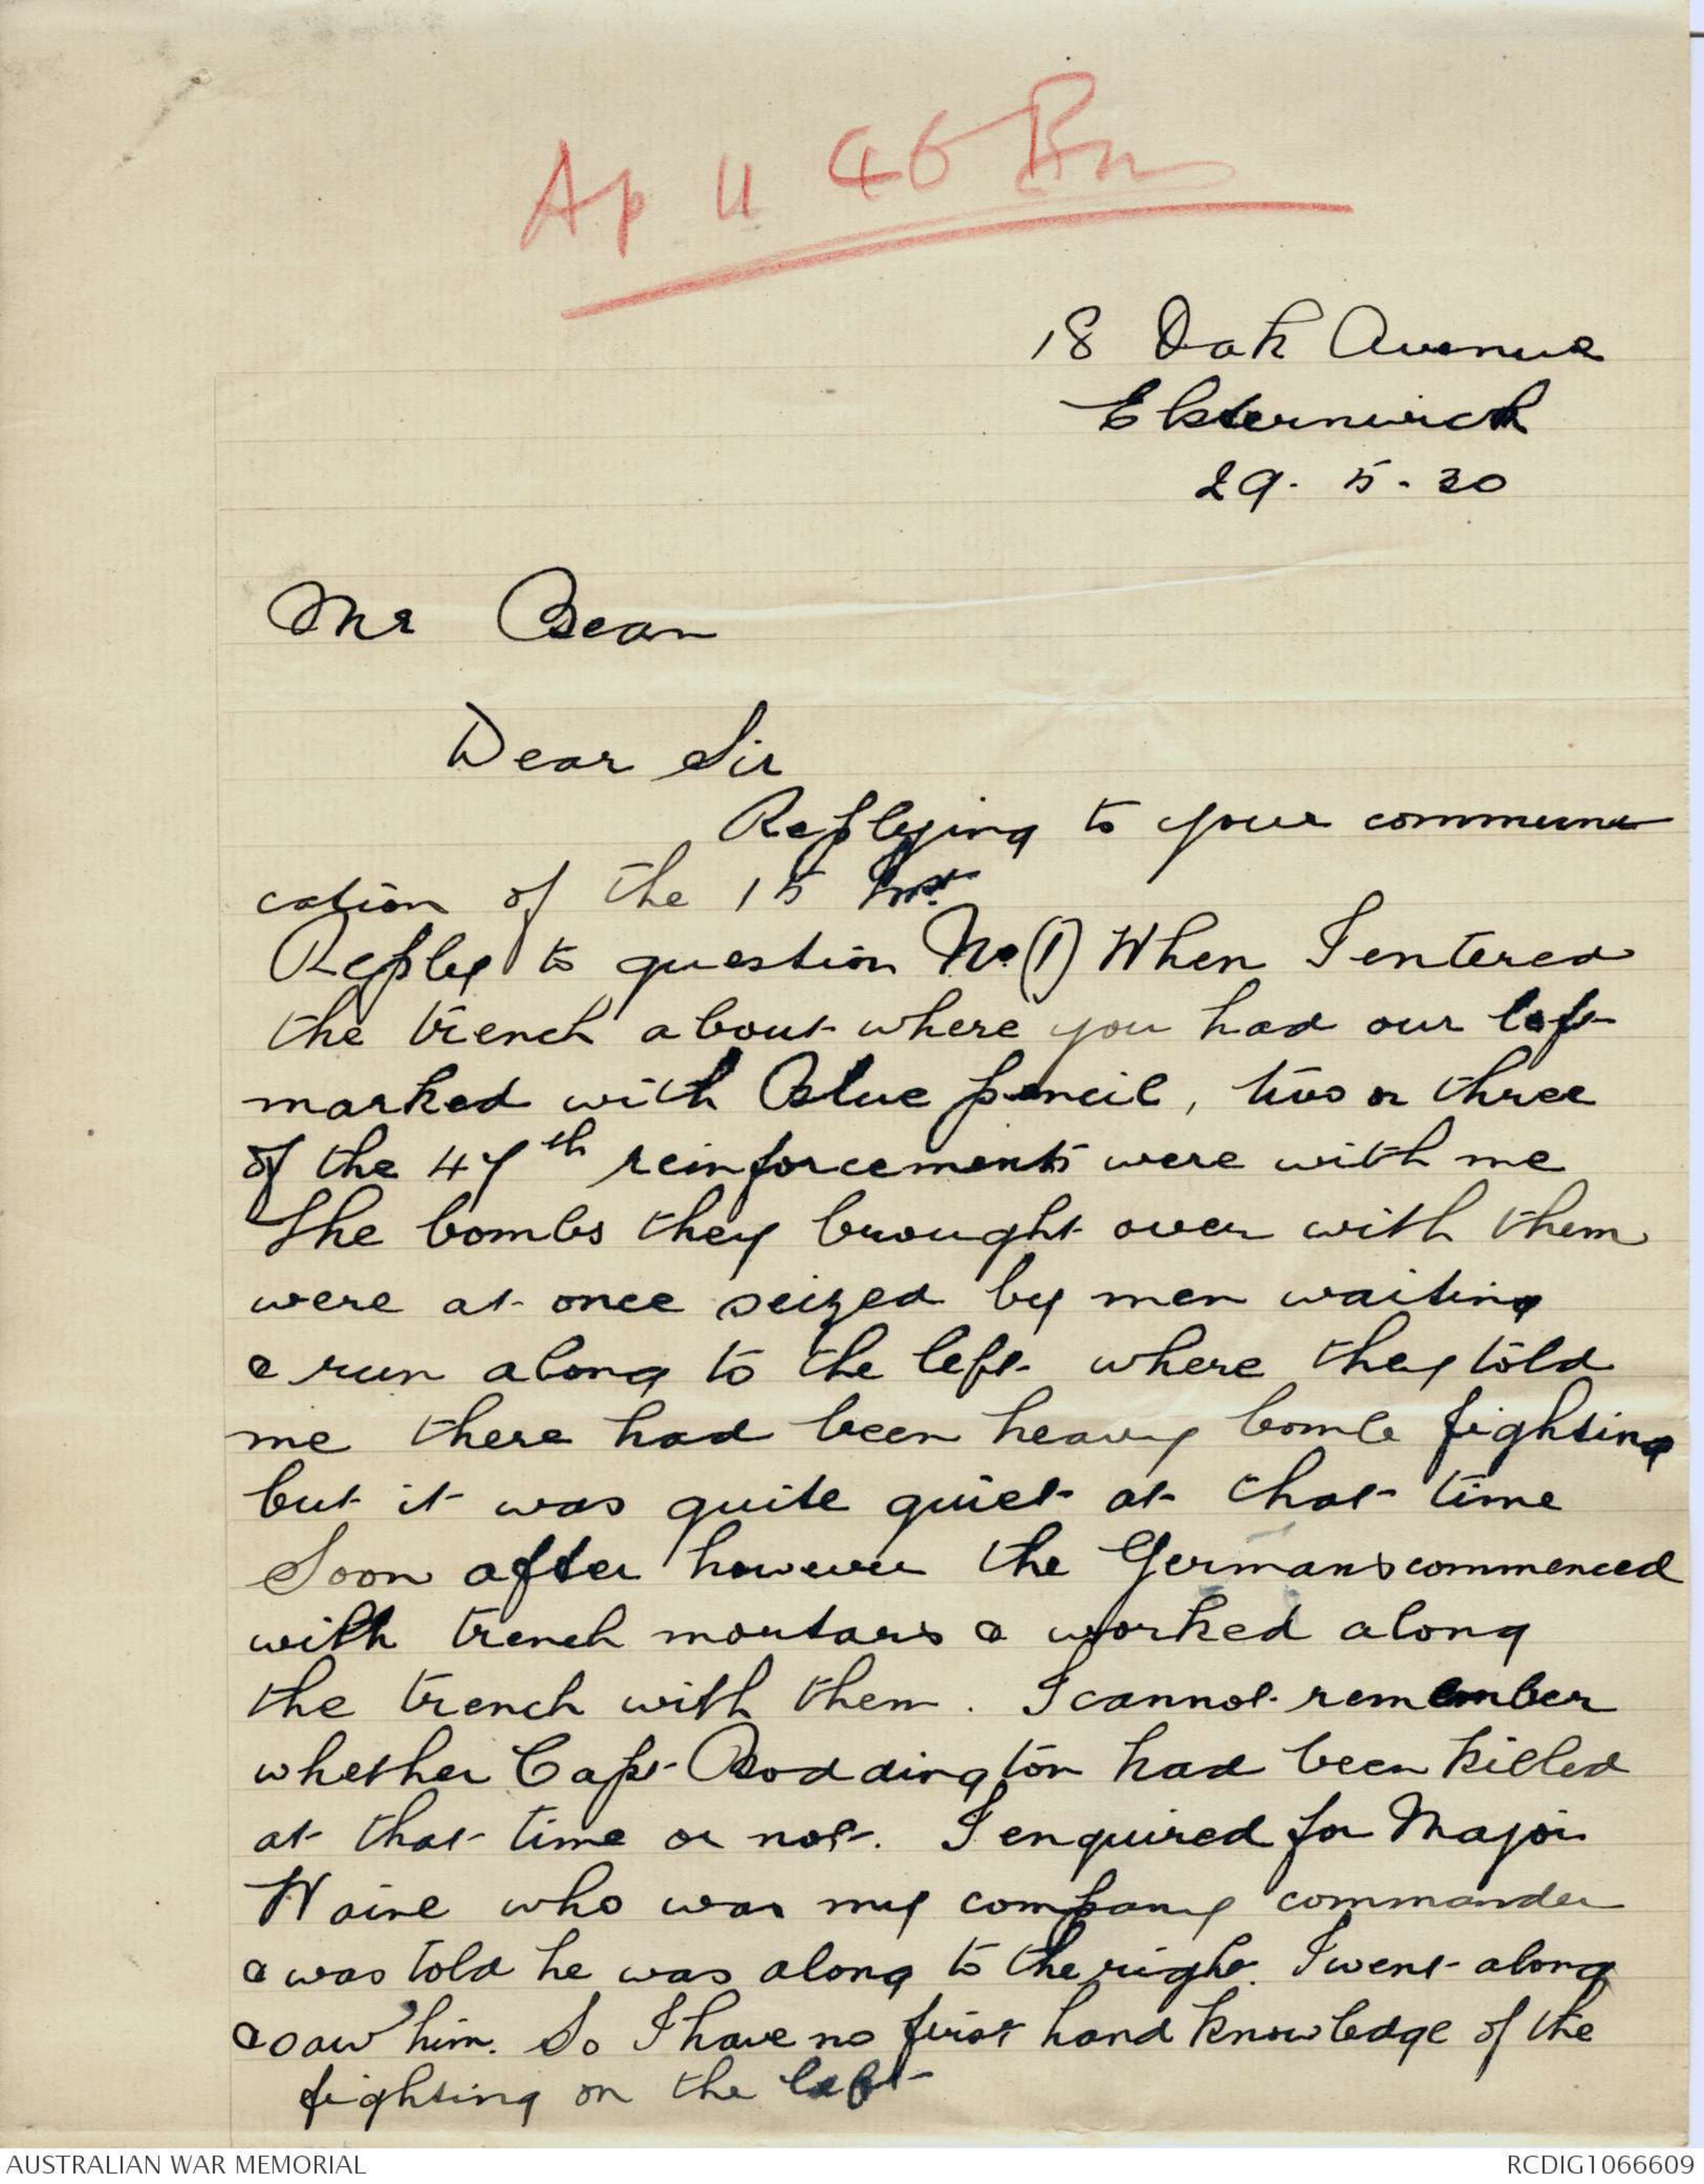 Ap 11 46 Bn
18 Oak Avenue
Elsternwick
29. 5. 30
Mr Bean
Dear Sir
Replying to your communi
cation of the 15 Inst.
Reply to question No (1) When I entered
the trench about where you had our left
marked with Blue pencil, two or three
of the 47th reinforcements were with me
The bombs they brought over with them
were at once seized by men waiting
& run along to the left where they told
me there had been heavy bomb fighting
but it was quite quiet at that time
Soon after however the Germans commenced
with trench mortars & worked along
the trench with them. I cannot remember
whether Capt Boddington had been killed
at that time or not. I enquired for Major
Waine who was my company commander
& was told he was along to the right. I went along
& saw him. So I have no first hand knowledge of the
fighting on the left
AUSTRALIAN WAR MEMORIAL
RCDIG1066609